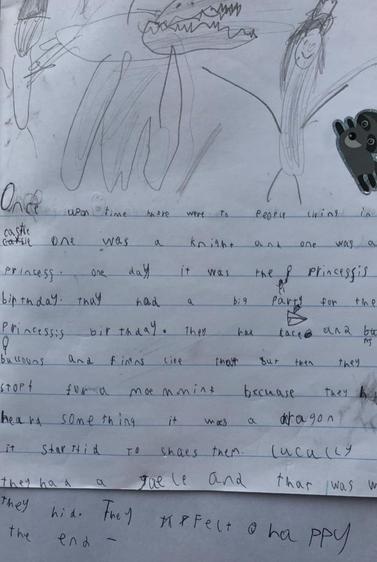 Once upon time there were to people living in
castle one was a knight and one was a
princess. one day it was the princessis
birthday. thay had a big party for the
princessis birthday. they had and
bulloons and finns like that But then they
stopt for a moemmint becuase they
heard something it was a dragon
it startid to shaes them. lucally
they had a and that was
they hid. They felt happy
the end -